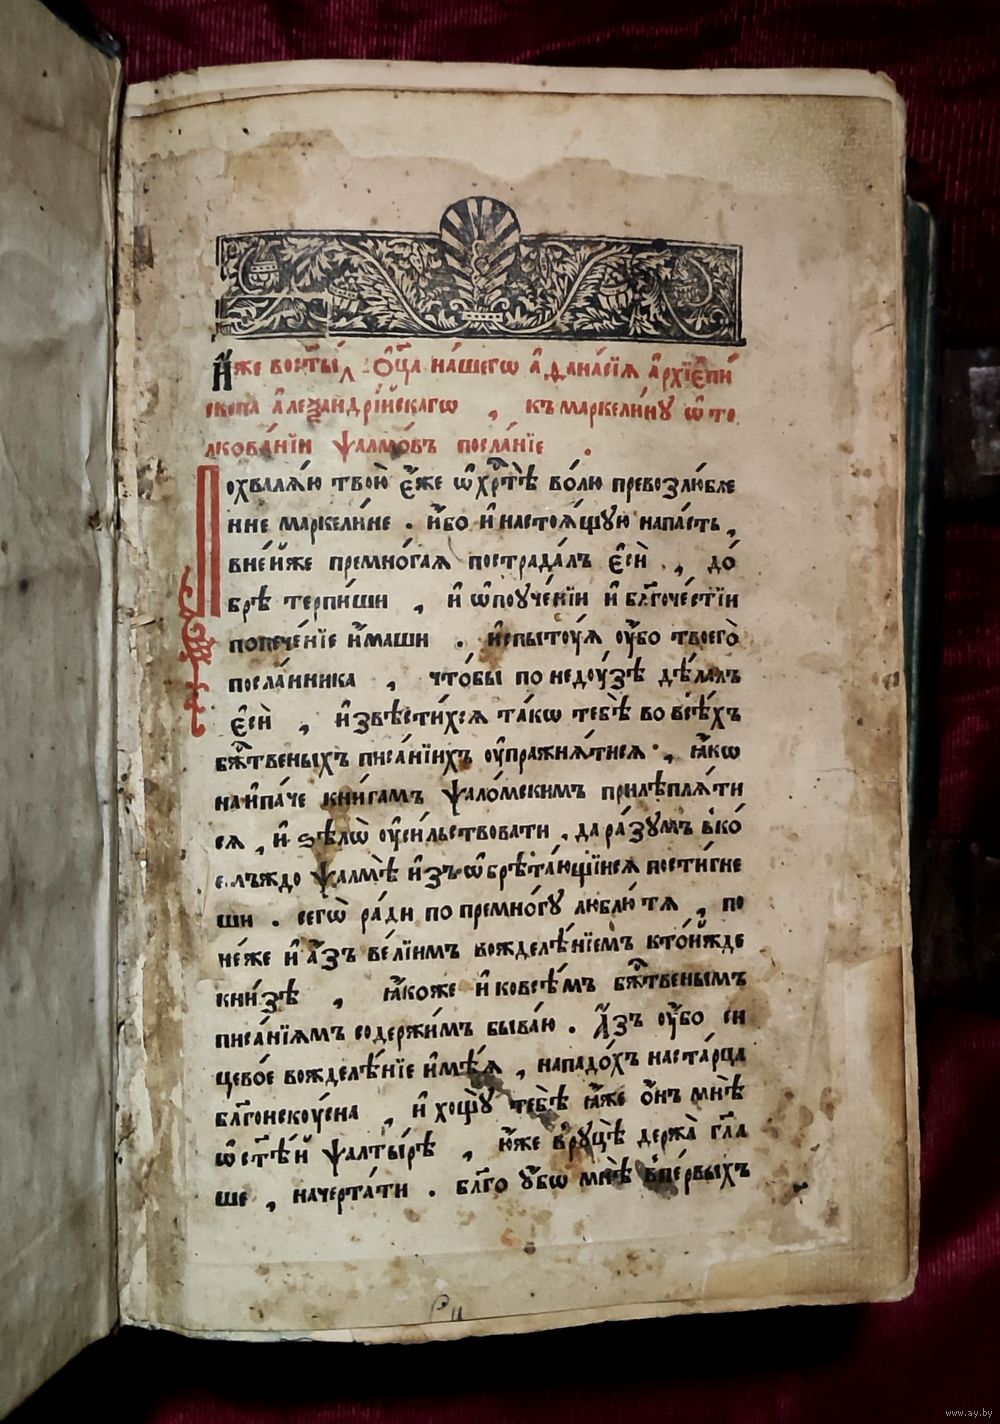 И҆́же во ст҃ы́ л Ѻ҆ц҃а на́шегѡ а҆ѳана́сїѧ а҆рхїєпи́
скопа а҆леѯандрі́йскагѡ , къ маркели́ну ѡ҆ то
лкова́нїи ѱалмо́въ посла́нїе .
Похвалѧ́ю твою̀ є҆́же ѡ҆ хрⷭ҇тѣ̀ во́лю превозлю́бле
нне маркели́не . и҆́бо и҆ настоѧ́щую напа́сть ,
вне́йже премно́гаѧ пострада́лъ є҆сѝ , до́
брѣ терпи́ши , и҆ ѡ҆поуче́нїи и҆ бл҃гоче́стїи
попече́нїе и҆́маши . и҆спытоу́ѧ ѹ҆́бо твоего̀
посла́нника , что́бы по недоу́зѣ дѣ́лалъ
є҆сѝ , и҆звѣсти́хсѧ та́кѡ тебѣ̀ во всѣ́хъ
бж҃твеныхъ писа́нїихъ ѹ҆пражнѧ́тисѧ , ꙗ҆́кѡ
наи҆па́че кни́гамъ ѱало́мскимъ прилѣплѧ́ти
сѧ , и҆ ѕѣлѡ̀ ѹ҆си́льствовати , да ра́зумъ в҆ко́
емъждо ѱалмѣ̀ и҆зъѡ҆брѣта́ющїйсѧ пости́гне
ши . сегѡ̀ ра́ди по премно́гу люблю́ тѧ , по
не́же и҆ а҆́зъ ве́лїимъ вожделѣ́нїемъ кто́йжде
кни́зѣ , ꙗ҆́коже и҆ ковсѣ́мъ бж҃твенымъ
писа́нїѧмъ содержи́мъ быва́ю . А҆́зъ ѹ҆́бо си
цево́е вожделѣ́нїе и҆мѣ́ѧ , нападо́хъ на ста́рца
бл҃гоискоу́сна , и҆ хощу̀ тебѣ̀ ꙗ҆́же ѻ҆́нъ мнѣ̀
ѡ҆ ст҃ѣ́й ѱалты́рѣ , ю҆́же в҆руцѣ̀ держа̀ гл҃а
ше , начерта́ти . бл҃го ѹ҆́бѡ мнѣ̀ в҆пе́рвыхъ
www.ay.by